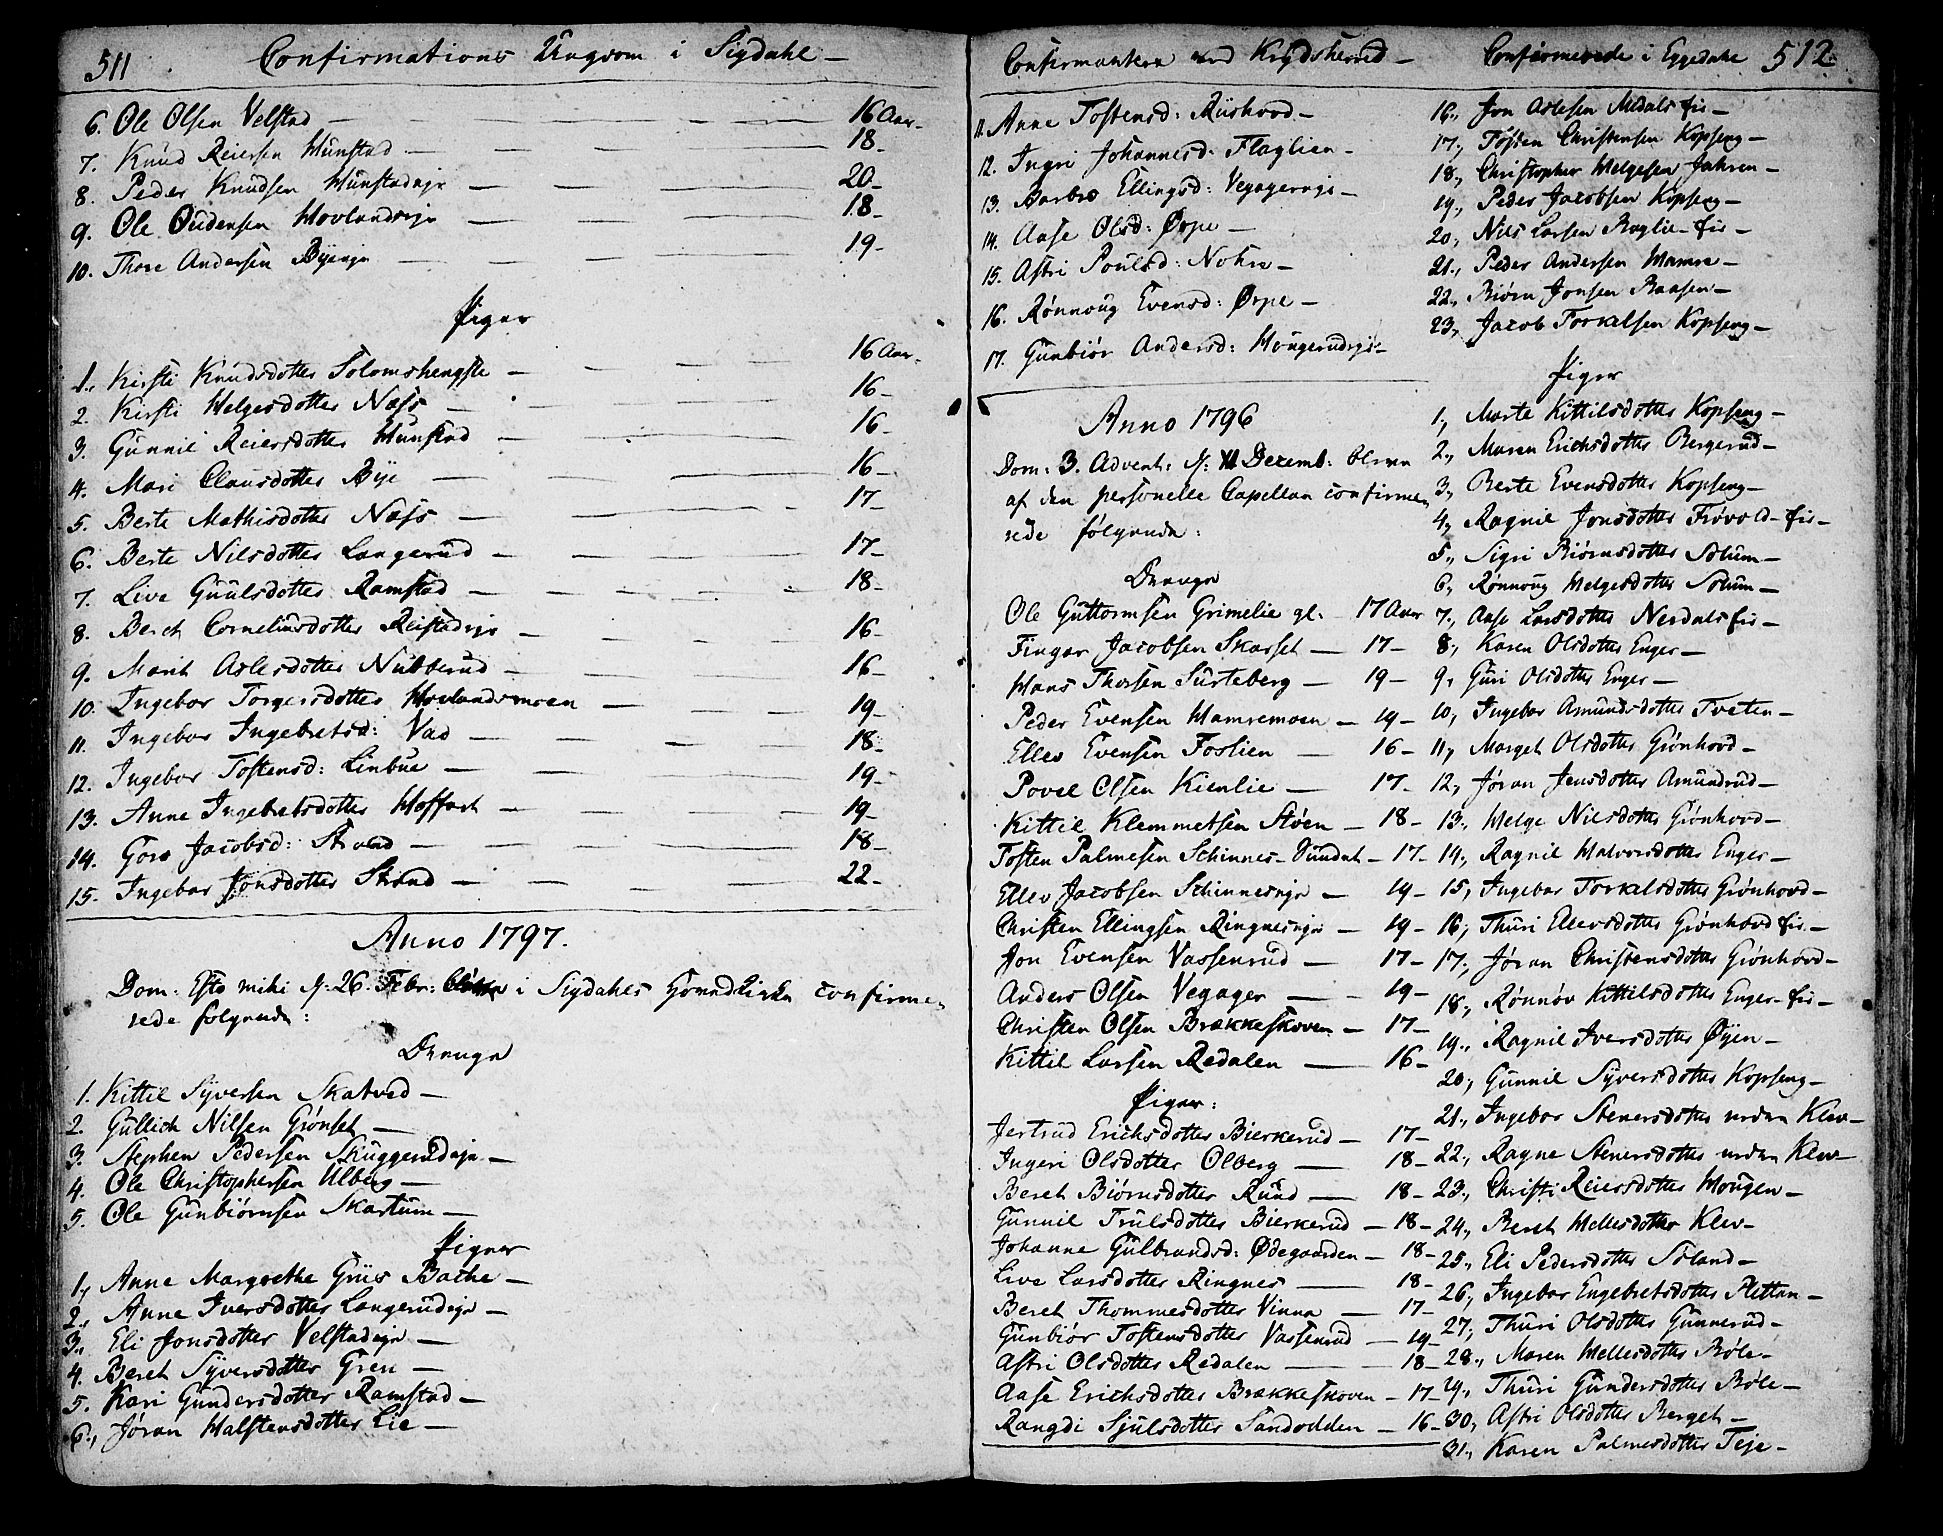 511 Confirmations Ungdom i Sigdahl —
6. Ole Olsen Velstad — 16 Aar.
7. Knud Reiersen Hunstad — 18 —
8. Peder Knudsen Hunstadeje — 20 —
9. Ole Oudensen Hovlandseje — 18 —
10. Thore Andersen Byeeje — 19 —
Piger
1., Kirsti Knudsdotter Solomshengsle — 16 Aar.
2. Kirsti Helgesdotter Næss — 16 —
3. Gunnil Reiersdotter Hunstad — 16 —
4. Mari Clausdotter Bye — 16 —
5. Berte Mathisdotter Næss — 17 —
6. Berte Nilsdotter Langerud — 17 —
7. Live Guulsdotter Ramstad — 18 —
8. Beret Corneliusdotter Reistadeje — 16 —
9. Marit Aslesdotter Nubberud — 16 —
10. Ingebor Torgersdotter Hovlandsmoen — 19 —
11. Ingebor Ingebretsd: Vad — 18 —
12. Ingebor Tostensd: Linbue — 19 —
13. Anne Ingebretsdotter Hoffart — 19 —
14. Goro Jacobsd: Strand — 18 —
15. Ingebor Jonsdotter Strand — 22 —
Anno 1797.
Dom: Esto mihi d: 26. Febr: bleve i Sigdahls Hovedkirke confirme-
rede følgende:
Drenge
1. Kittil Syversen Skatved —
2. Gullich Nilsen Grønset —
3. Stephen Pedersen Skuggerudeje —
4. Ole Christophersen Ulberg —
5. Ole Gunbiørnsen Skartum —
Piger
1., Anne Margrethe Gruis Bache —
2., Anne Iversdotter Langerudeje —
3., Eli Jonsdotter Velstadeje —
4. Beret Syversdotter Gren —
5. Kari Gundersdotter Ramstad —
6., Jøran Halstensdotter Lie —
Confirmanterne ved Krydsherred —
11. Anne Tostensd: Ruishovd —
12. Ingri Johannesd: Flaglien —
13. Barbro Ellingsd: Vegagereje —
14. Aase Olsd: Ørpe —
15. Astri Poulsd: Nohre —
16. Rønnoug Evensd: Ørpe —
17. Gunbiør Andersd: Hougerudeje —
Anno 1796
Dom: 3. Advent: d: 11 Decemb: bleve
af den personelle Capellan confirme-
rede følgende:
Drenge
Ole Guttormsen Grimelie gl: — 17 Aar
Fingar Jacobsen Skarset — 17 —
Hans Thorsen Surteberg — 19 —
Peder Evensen Hamremoen — 19 —
Ellev Evensen Foslien — 16 —
Povel Olsen Kienlie — 17 —
Kittil Klemmetsen Støen — 18 —
Tosten Palmesen Schinnes-Sundet — 17 —
Ellev Jacobsen Schinneseje — 19 —
Christen Ellingsen Ringneseje — 19 —
Jon Evensen Vassenrud — 17 —
Anders Olsen Vegager — 19 —
Christen Olsen Brækkeskoven — 17 —
Kittil Larsen Redalen — 16 —
Piger:
Jertrud Erichsdotter Bierkerud — 17 —
Ingeri Olsdotter Olberg — 18 —
Beret Biørnsdotter Rund — 18 —
Gunnil Trulsdotter Bierkerud — 18 —
Johanne Gulbrandsd: Ødegaarden — 18 —
Live Larsdotter Ringnes — 18 —
Beret Thommesdotter Vinna — 17 —
Gunbiør Tostensdotter Vassenrud — 19 —
Astri Olsdotter Redalen — 18 —
Aase Erichsdotter Brækkeskoven — 17 —
Rangdi Sjulsdotter Sandodden — 16 —
Confirmerede i Eggedahl 512.
16., Jon Aslesen Medals fis —
17., Tosten Christensen Kopseng —
18., Christopher Helgesen Jahren —
19., Peder Jacobsen Kopseng —
20., Nils Larsen Raglie-fis —
21., Peder Andersen Hamre —
22., Biørn Jonsen Baasen —
23., Jacob Torkelsen Kopseng —
Piger
1., Marte Kittilsdotter Kopseng —
2., Maren Erichsdotter Bergerud —
3., Berte Evensdotter Kopseng —
4., Ragnil Jonsdotter Frøvold-fis —
5., Sigri Biørnsdotter Solum —
6., Rønnoug Helgesdotter Solum —
7., Aase Larsdotter Nerdals fis —
8., Karen Olsdotter Enger —
9., Guri Olsdotter Enger —
10., Ingebor Amundsdotter Tveten —
11., Marget Olsdotter Grønhovd —
12., Jøran Jensdotter Amundrud —
13., Helge Nilsdotter Grønhovd —
14., Ragnil Halvorsdotter Enger —
15., Ingebor Torkelsdotter Grønhovd —
16., Thuri Ellevsdotter Grønhovd fis. —
17., Jøran Christensdotter Grønhovd —
18., Rønnøv Kittilsdotter Enger-fis —
19., Ragnil Iversdotter Øyen —
20., Gunnil Syversdotter Kopseng —
21., Ingebor Stenersdotter neden Klev —
22., Ragne Stenersdotter neden Klev —
23., Christi Reiersdotter Hougen —
24., Beret Hellesdotter Klev —
25., Eli Pedersdotter Soland —
26., Ingebor Engebretsdotter Slettan —
27., Thuri Olsdotter Gunnerud —
28., Maren Hellesdotter Bøle —
29., Thuri Gundersdotter Bøle —
30., Astri Olsdotter Berget —
31., Karen Palmesdotter Teje —